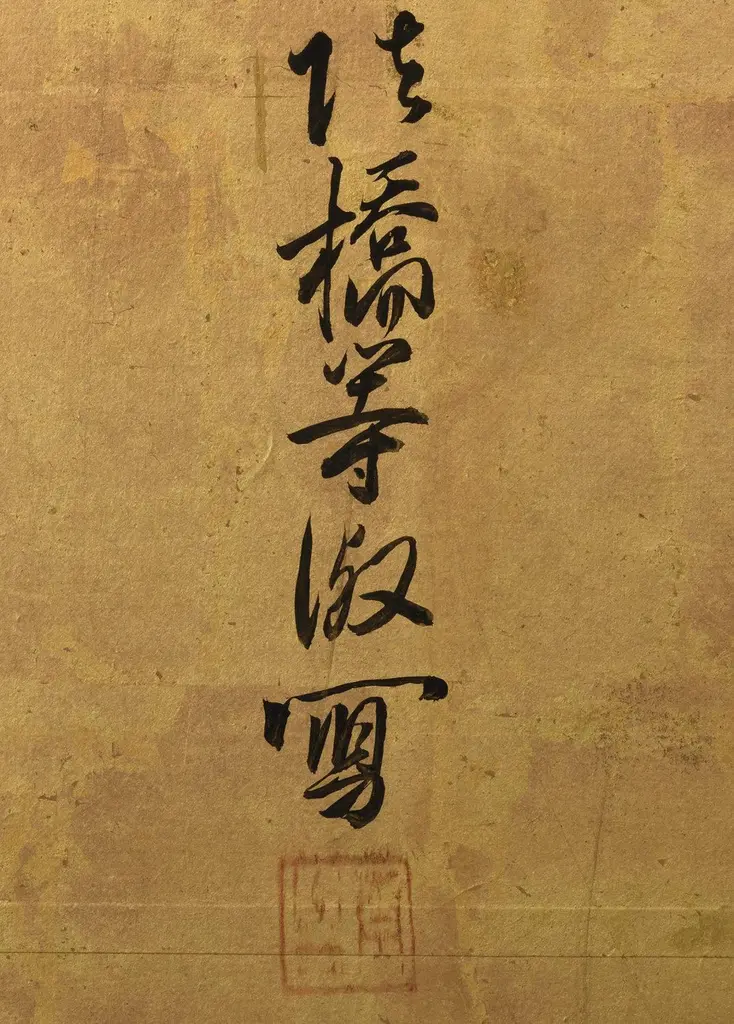 法橋等淑寫